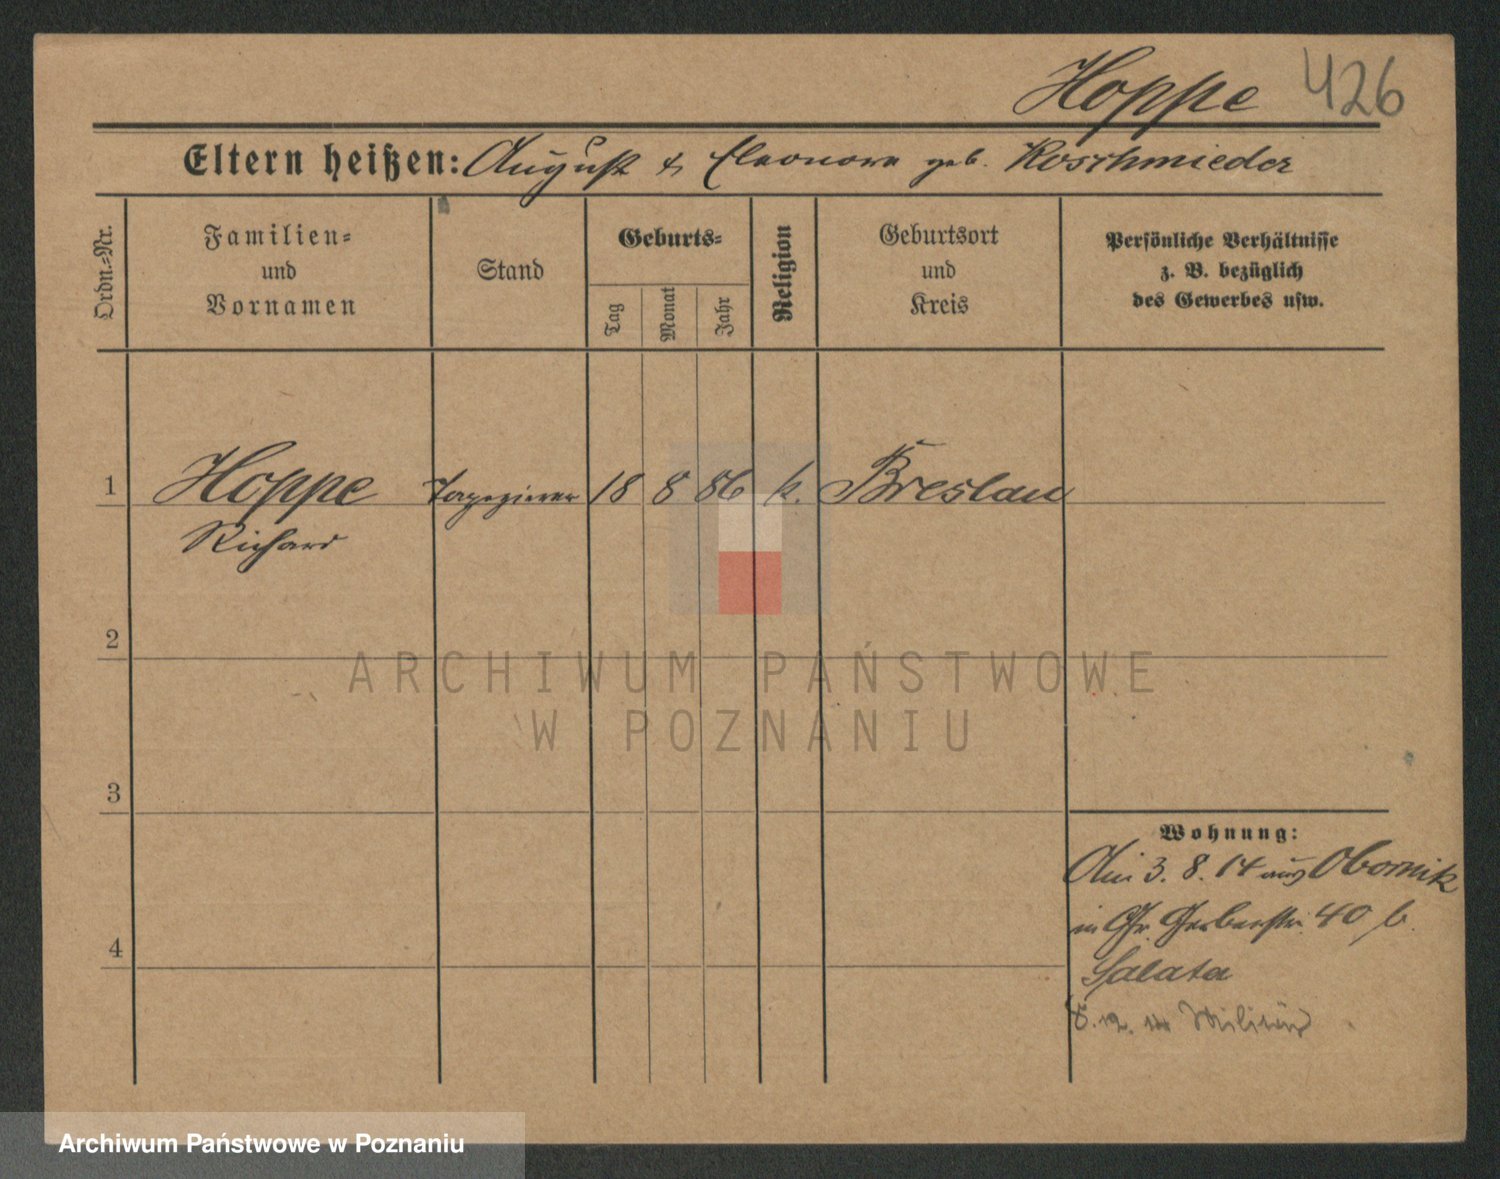 Hoppe 426
Eltern heißen: August & Eleonore geb. Koschmieder
Ordn.-Nr.
Familien-
und
Vornamen
Stand
Geburts-
Tag
Monat
Jahr
Religion
Geburtsort
und
Kreis
Persönliche Verhältnisse
z. B. bezüglich
des Gewerbes usw.
1 Hoppe Tapezierer 18 8 86 k. Breslau
Richard
2
3
4
Wohnung:
Am 3. 8. 14 aus Obornik
in Gr. Gerberstr. 40 b.
Salata
8. 12. 14 Militär
ARCHIWUM PAŃSTWOWE
W POZNANIU
Archiwum Państwowe w Poznaniu